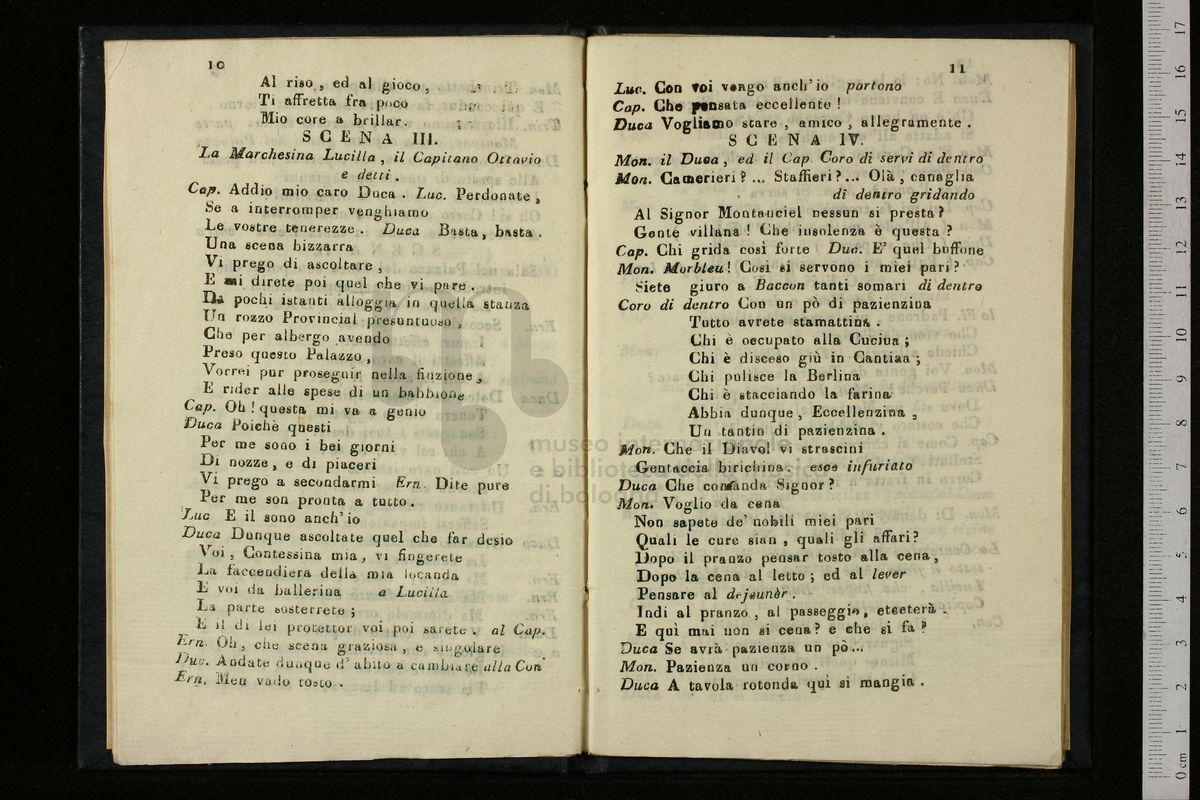 10
Al riso, ed al gioco,
Ti affretta fra poco
Mio core a brillar.
SCENA III.
La Marchesina Lucilla, il Capitano Ottavio
e detti.
Cap. Addio mio caro Duca. Luc. Perdonate,
Se a interromper venghiamo
Le vostre tenerezze. Duca Basta, basta.
Una scena bizzarra
Vi prego di ascoltare,
E mi direte poi quel che vi pare.
Da pochi istanti alloggia in quella stanza
Un rozzo Provincial presuntuoso,
Che per albergo avendo
Preso questo Palazzo,
Vorrei pur proseguir nella finzione,
E rider alle spese di un babbione
Cap. Oh! questa mi va a genio
Duca Poichè questi
Per me sono i bei giorni
Di nozze, e di piaceri
Vi prego a secondarmi Ern. Dite pure
Per me son pronta a tutto.
Luc E il sono anch' io
Duca Dunque ascoltate quel che far desio
Voi, Contessina mia, vi fingerete
La faccendiera della mia locanda
E voi da ballerina a Lucilla
La parte sosterrete;
E il di lei protettor voi poi sarete. al Cap.
Ern. Oh, che scena graziosa, e singolare
Duc. Andate dunque d' abito a cambiare alla Con
Ern. Men vado tosto.
11
Luc. Con voi vengo anch' io partono
Cap. Che pensata eccellente!
Duca Vogliamo stare, amico, allegramente.
SCENA IV.
Mon. il Duca, ed il Cap. Coro di servi di dentro
Mon. Camerieri? ... Staffieri?... Olà, canaglia
di dentro gridando
Al Signor Montauciel nessun si presta?
Gente villana! Che insolenza è questa?
Cap. Chi grida così forte Duc. E' quel buffone
Mon. Morbleu! Così si servono i miei pari?
Siete giuro a Baccon tanti somari di dentro
Coro di dentro Con un pò di pazienzina
Tutto avrete stamattina.
Chi è occupato alla Cucina;
Chi è disceso giù in Cantina;
Chi pulisce la Berlina
Chi è stacciando la farina
Abbia dunque, Eccellenzina,
Un tantin di pazienzina.
Mon. Che il Diavol vi strascini
Gentaccia birichina. esce infuriato
Duca Che comanda Signor?
Mon. Voglio da cena
Non sapete de' nobili miei pari
Quali le cure sian, quali gli affari?
Dopo il pranzo pensar tosto alla cena,
Dopo la cena al letto; ed al lever
Pensare al dejeunèr.
Indi al pranzo, al passeggio, eteeterà.
E quì mai non si cena? e che si fa?
Duca Se avrà pazienza un pò...
Mon. Pazienza un corno.
Duca A tavola rotonda quì si mangia.
museo internazionale
e biblioteca della musica
di bologna
0 cm 1 2 3 4 5 6 7 8 9 10 11 12 13 14 15 16 17